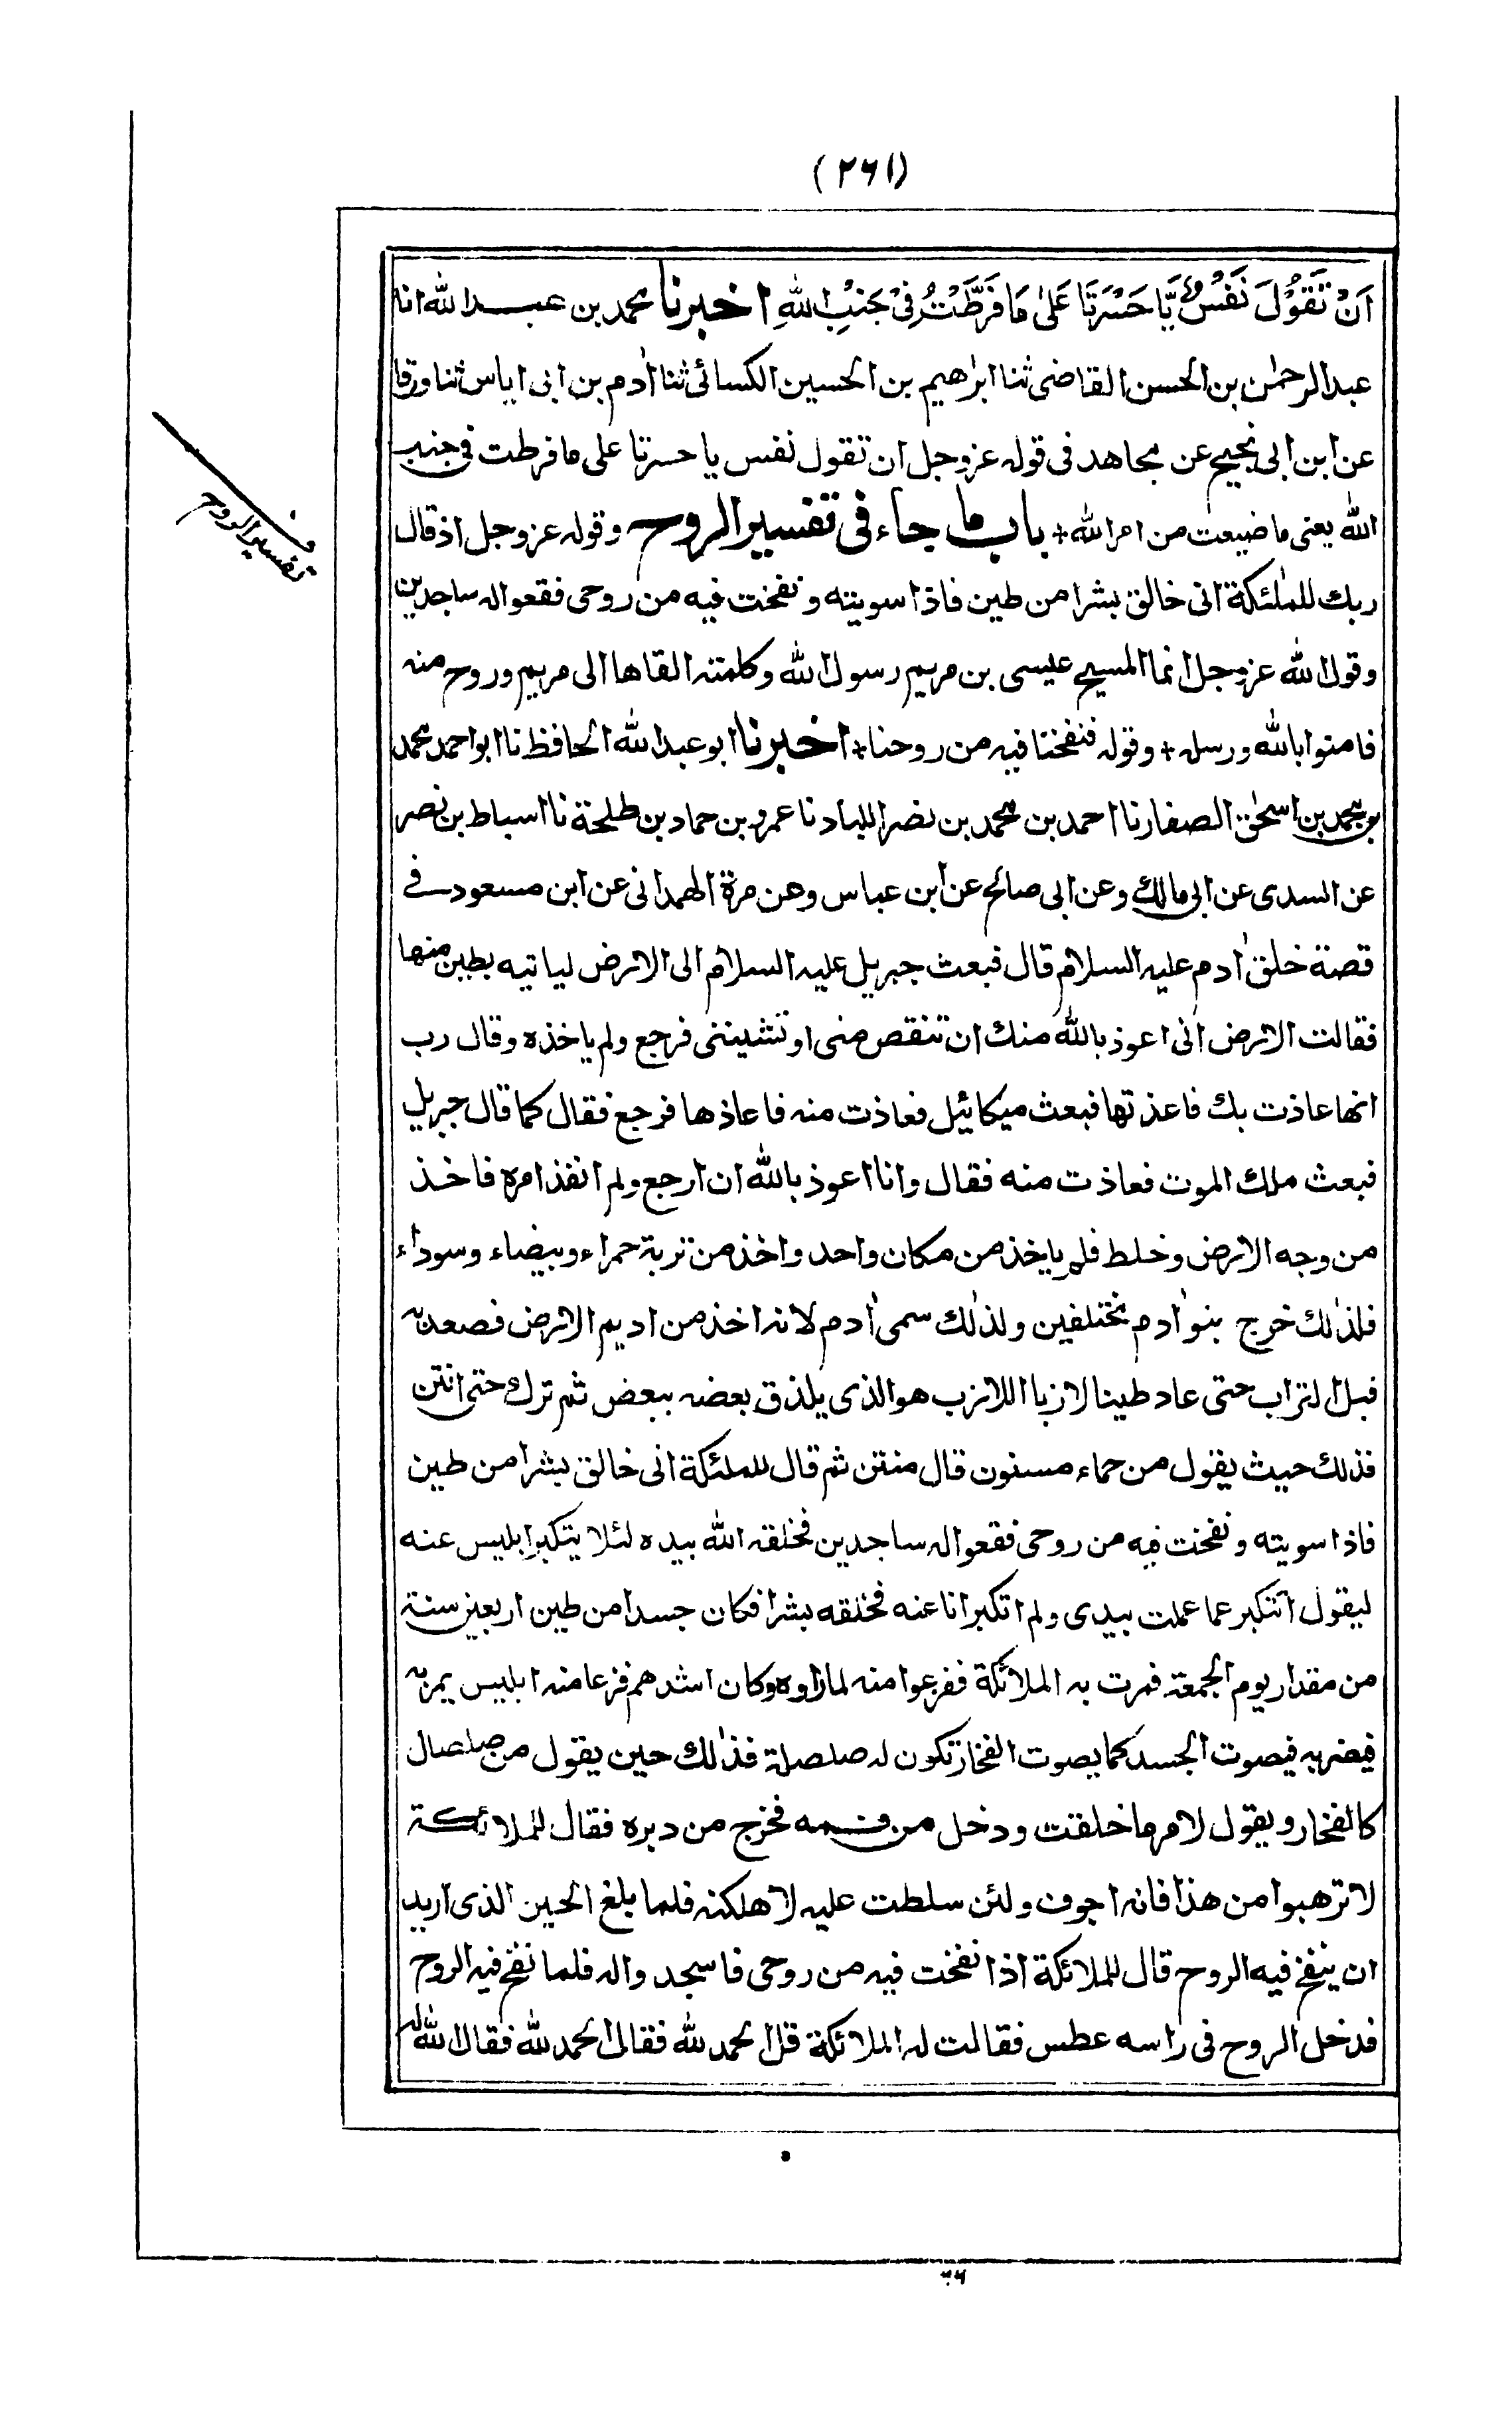 (٢٦١)
اَنْ تَقُوْلَ نَفْسٌ يَّا حَسْرَتَا عَلٰى مَا فَرَّطْتُ فِىْ جَنْبِ اللّٰهِ اخبرنا محمد بن عبد الله انا
عبد الرحمٰن بن الحسن القاضى ثنا ابراهيم بن الحسين الكسائى ثنا اٰدم بن ابى اياس ثنا ورقا
عن ابن ابى نجيح عن مجاهد فى قوله عز وجل ان تقول نفس يا حسرتا على ما فرطت فى جنب
الله يعنى ما ضيعت من امر الله + باب ما جاء فى تفسير الروح وقوله عز وجل اذ قال
ربك للملٰئكة انى خالق بشرا من طين فاذا سويته ونفخت فيه من روحى فقعوا له ساجدين
وقول الله عز وجل انما المسيح عيسى بن مريم رسول الله وكلمته القاها الى مريم وروح منه
فامنوا بالله ورسله + وقوله فنفخنا فيه من روحنا + اخبرنا ابو عبد الله الحافظ نا ابو احمد محمد
بن محمد بن اسحٰق الصفار نا احمد بن محمد بن نصر اللباد نا عمرو بن حماد بن طلحة نا اسباط بن نصر
عن السدى عن ابى مالك وعن ابى صالح عن ابن عباس وعن مرة الهمدانى عن ابن مسعود فى
قصة خلق اٰدم عليه السلام قال فبعث جبريل عليه السلام الى الارض لياتيه بطين منها
فقالت الارض انى اعوذ بالله منك ان تنقص منى او تشيننى فرجع ولم ياخذه وقال رب
انها عاذت بك فاعذتها فبعث ميكائيل فعاذت منه فاعاذها فرجع فقال كما قال جبريل
فبعث ملك الموت فعاذت منه فقال وانا اعوذ بالله ان ارجع ولم انفذ امره فاخذ
من وجه الارض وخلط فلم ياخذ من مكان واحد واخذ من تربة حمراء وبيضاء وسوداء
فلذٰلك خرج بنو اٰدم مختلفين ولذٰلك سمى اٰدم لانه اخذ من اديم الارض فصعد به
فبل التراب حتى عاد طينا لازبا اللازب هو الذى يلذق بعضه ببعض ثم ترك حتى انتن
فذلك حيث يقول من حماء مسنون قال منتن ثم قال للملئكة انى خالق بشرا من طين
فاذا سويته ونفخت فيه من روحى فقعوا له ساجدين فخلقه الله بيده لئلا يتكبر ابليس عنه
ليقول اتتكبر عما عملت بيدى ولم اتكبر انا عنه فخلقه بشرا فكان جسدا من طين اربعين سنة
من مقدار يوم الجمعة فمرت به الملائكة ففزعوا منه لما راوه وكان اشدهم فزعا منه ابليس يمر به
فيضربه فيصوت الجسد كما يصوت الفخار تكون له صلصلة فذٰلك حين يقول من صلصال
كالفخار ويقول لامر ما خلقت ودخل من فمه فخرج من دبره فقال للملائكة
لا ترهبوا من هذا فانه اجوف ولئن سلطت عليه لاهلكنه فلما بلغ الحين الذى اريد
ان ينفخ فيه الروح قال للملائكة اذا نفخت فيه من روحى فاسجدوا له فلما نفخ فيه الروح
فدخل الروح فى راسه عطس فقالت له الملائكة قل الحمد لله فقال الحمد لله فقال الله له
تفسير الروح